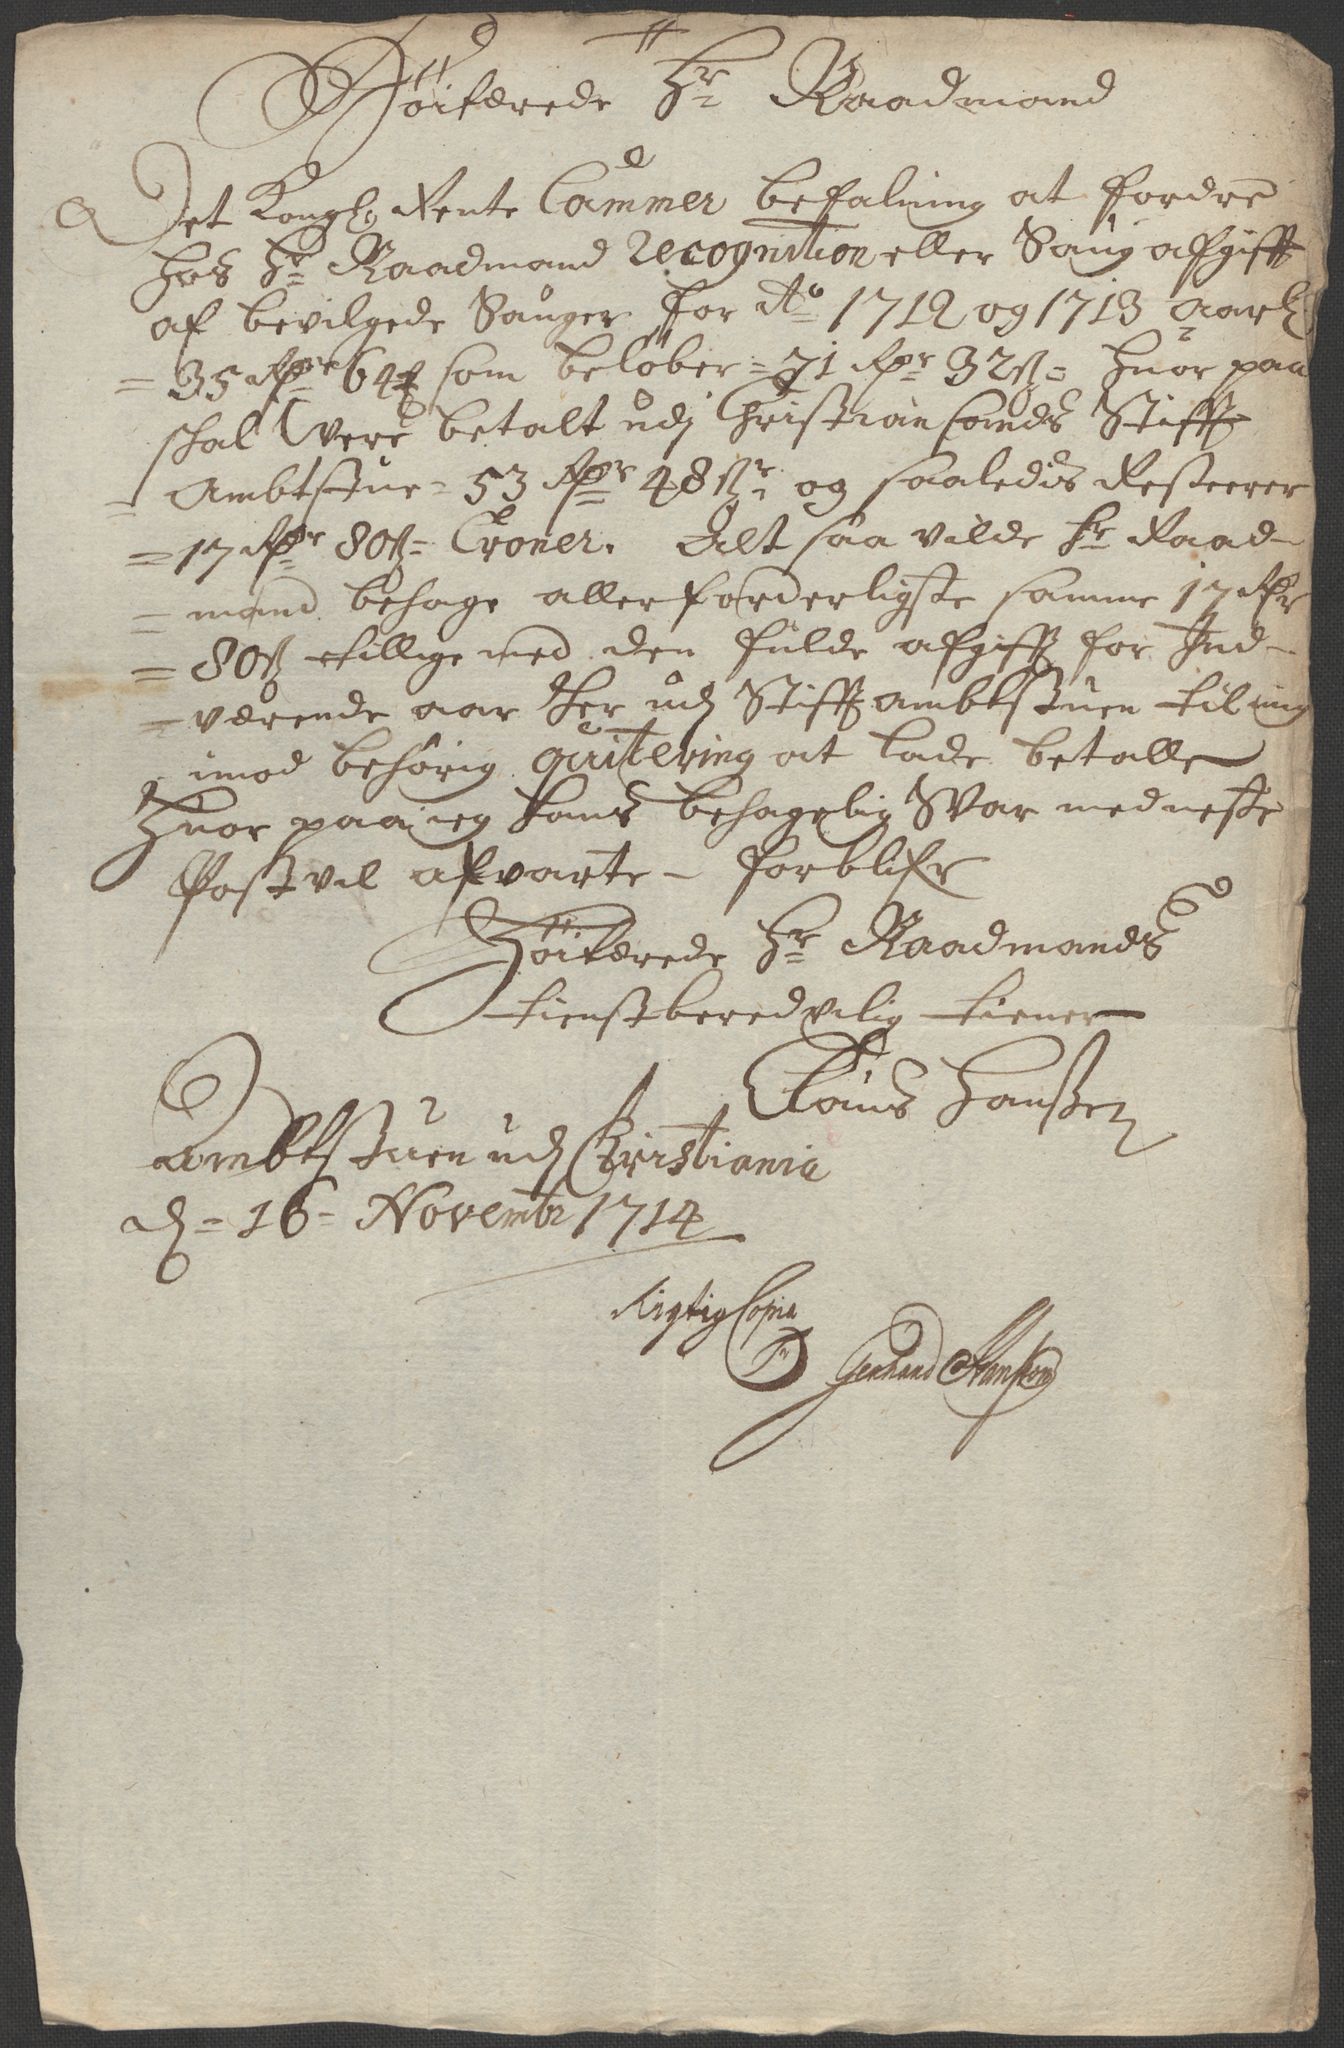 Høiærede Hr Raadmand
Det Kongl: Rente Cammer befalning at fordre
hos Hr Raadmand recognition eller Saug afgifft
af bevilgede Sauger for Ao 1712 og 1713 aarl:
= 35 Rdr 64 s som beløber = 71 Rdr 32 s = huor paa
skal Were betalt udj Christiansands Stiffts
Ambtstue = 53 Rdr 48 s: og saaledis Resterer
= 17 Rdr 80 s = Croner. Alt saa vilde Hr Raad-
= mand behage allerforderligste samme 17 Rdr
= 80 s tillige med den fulde afgifft for Ind-
= værende aar her udj Stifft ambtstuen til mig
imod behørig quitering at lade betalle
Huor paa jeg hans behagelig Svar med neste
Post vil afvarte – forblifr
Høiærede Hr Raadmands
tienstberedvilig tiener
Claus Hanssen
Ambtstuen udj Christiania
d = 16 = Novembr 1714
Rigtig Copia
Gerhard